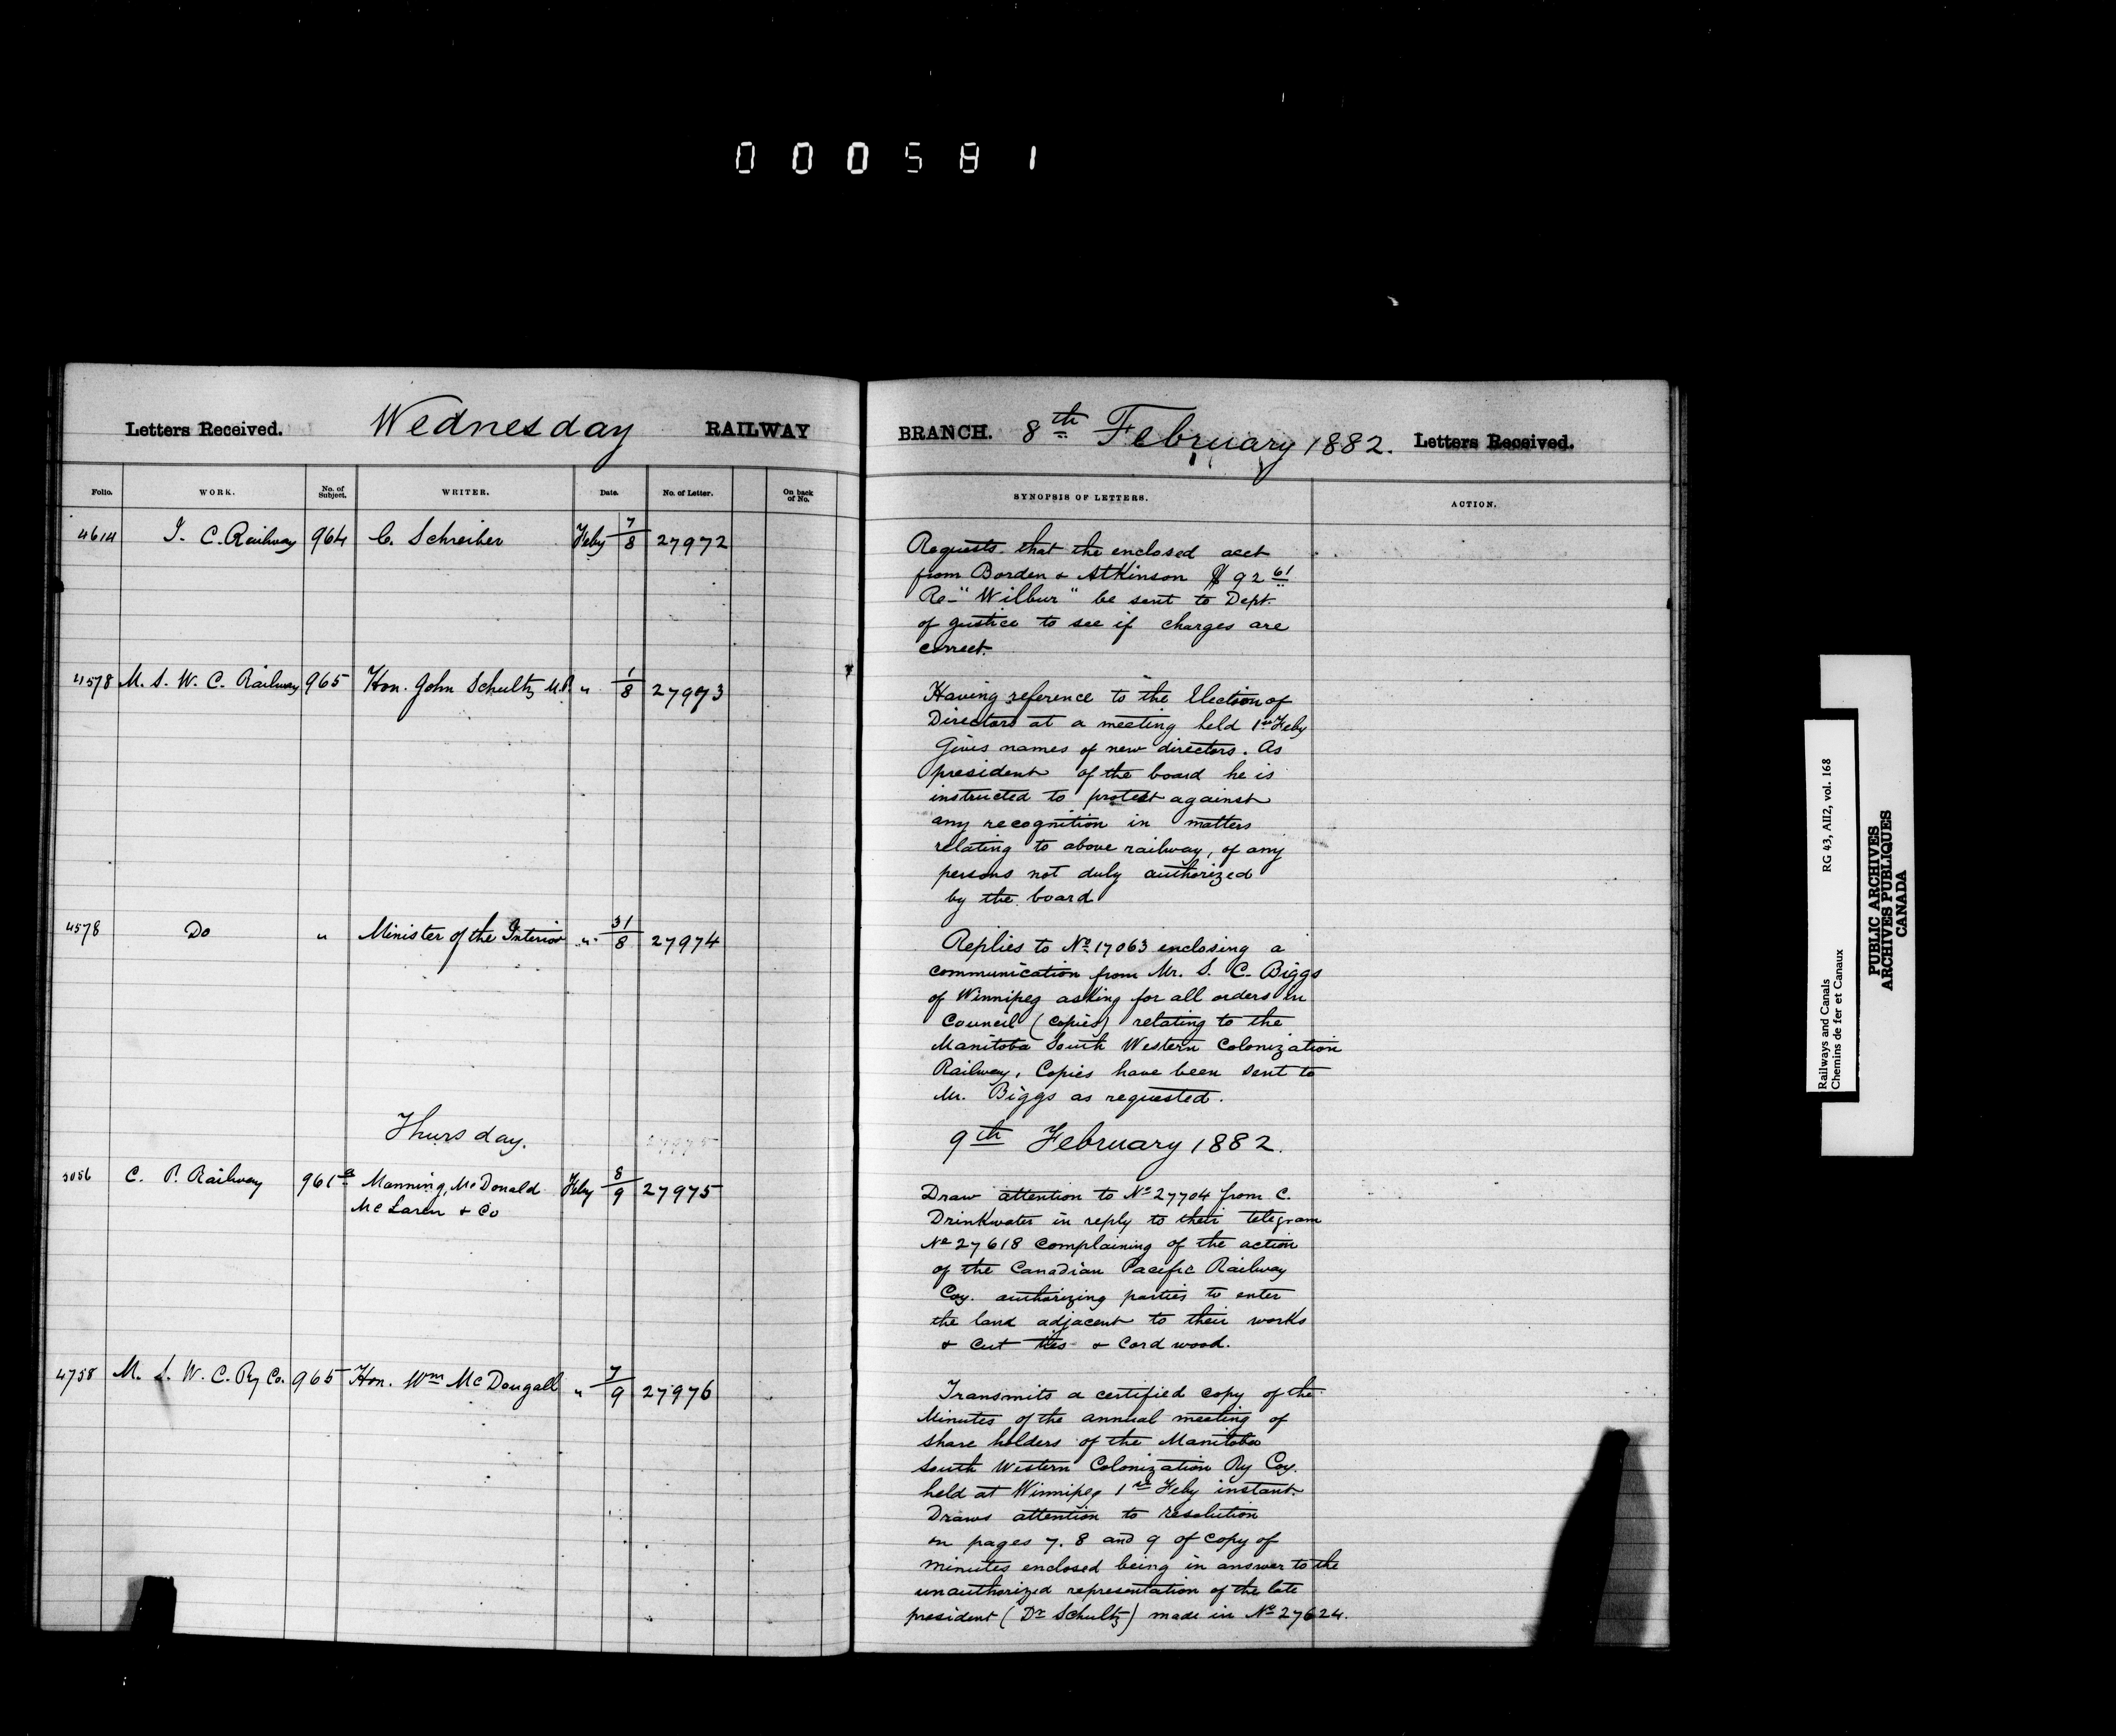 000581
Letters Received. Wednesday RAILWAY
Folio. WORK. No. of Subject. WRITER. Date. No. of Letter. On back of No.
4614 I. C. Railway 964 C. Schreiber Feby 7/8 27972
4578 M. S. W. C. Railway 965 Hon. John Schultz M.P. " 1/8 27973
4578 Do " Minister of the Interior " 31/8 27974
Thursday.
C. P. Railway 961a Manning, McDonald Feby 8/9 27975
McLaren & Co
4758 M. S. W. C. Ry Co. 965 Hon. Wm McDougall " 7/9 27976
BRANCH. 8th February 1882. Letters Received.
SYNOPSIS OF LETTERS. ACTION.
Requests that the enclosed acct
from Borden & Atkinson $92 61
Re - "Wilbur" be sent to Dept.
of justice to see if charges are
correct.
Having reference to the Election of
Directors at a meeting held 1st Feby
Gives names of new directors. As
president of the board he is
instructed to protest against
any recognition in matters
relating to above railway, of any
persons not duly authorized
by the board
Replies to No 17063 enclosing a
communication from Mr. S. C. Biggs
of Winnipeg asking for all orders in
Council (copies) relating to the
Manitoba South Western Colonization
Railway, Copies have been sent to
Mr. Biggs as requested.
9th February 1882.
Draw attention to No 27704 from C.
Drinkwater in reply to their telegram
No 27618 Complaining of the action
of the Canadian Pacific Railway
Coy. authorizing parties to enter
the land adjacent to their works
& cut ties & Cord wood.
Transmits a certified copy of the
Minutes of the annual meeting of
share holders of the Manitoba
South Western Colonization Ry Coy.
held at Winnipeg 1st Feby instant.
Draws attention to resolution
on pages 7. 8 and 9 of copy of
minutes enclosed being in answer to the
unauthorized representation of the late
president (Dr Schultz) made in No 27624.
Railways and Canals RG 43, AII2, vol. 168
Chemins de fer et Canaux
PUBLIC ARCHIVES
ARCHIVES PUBLIQUES
CANADA